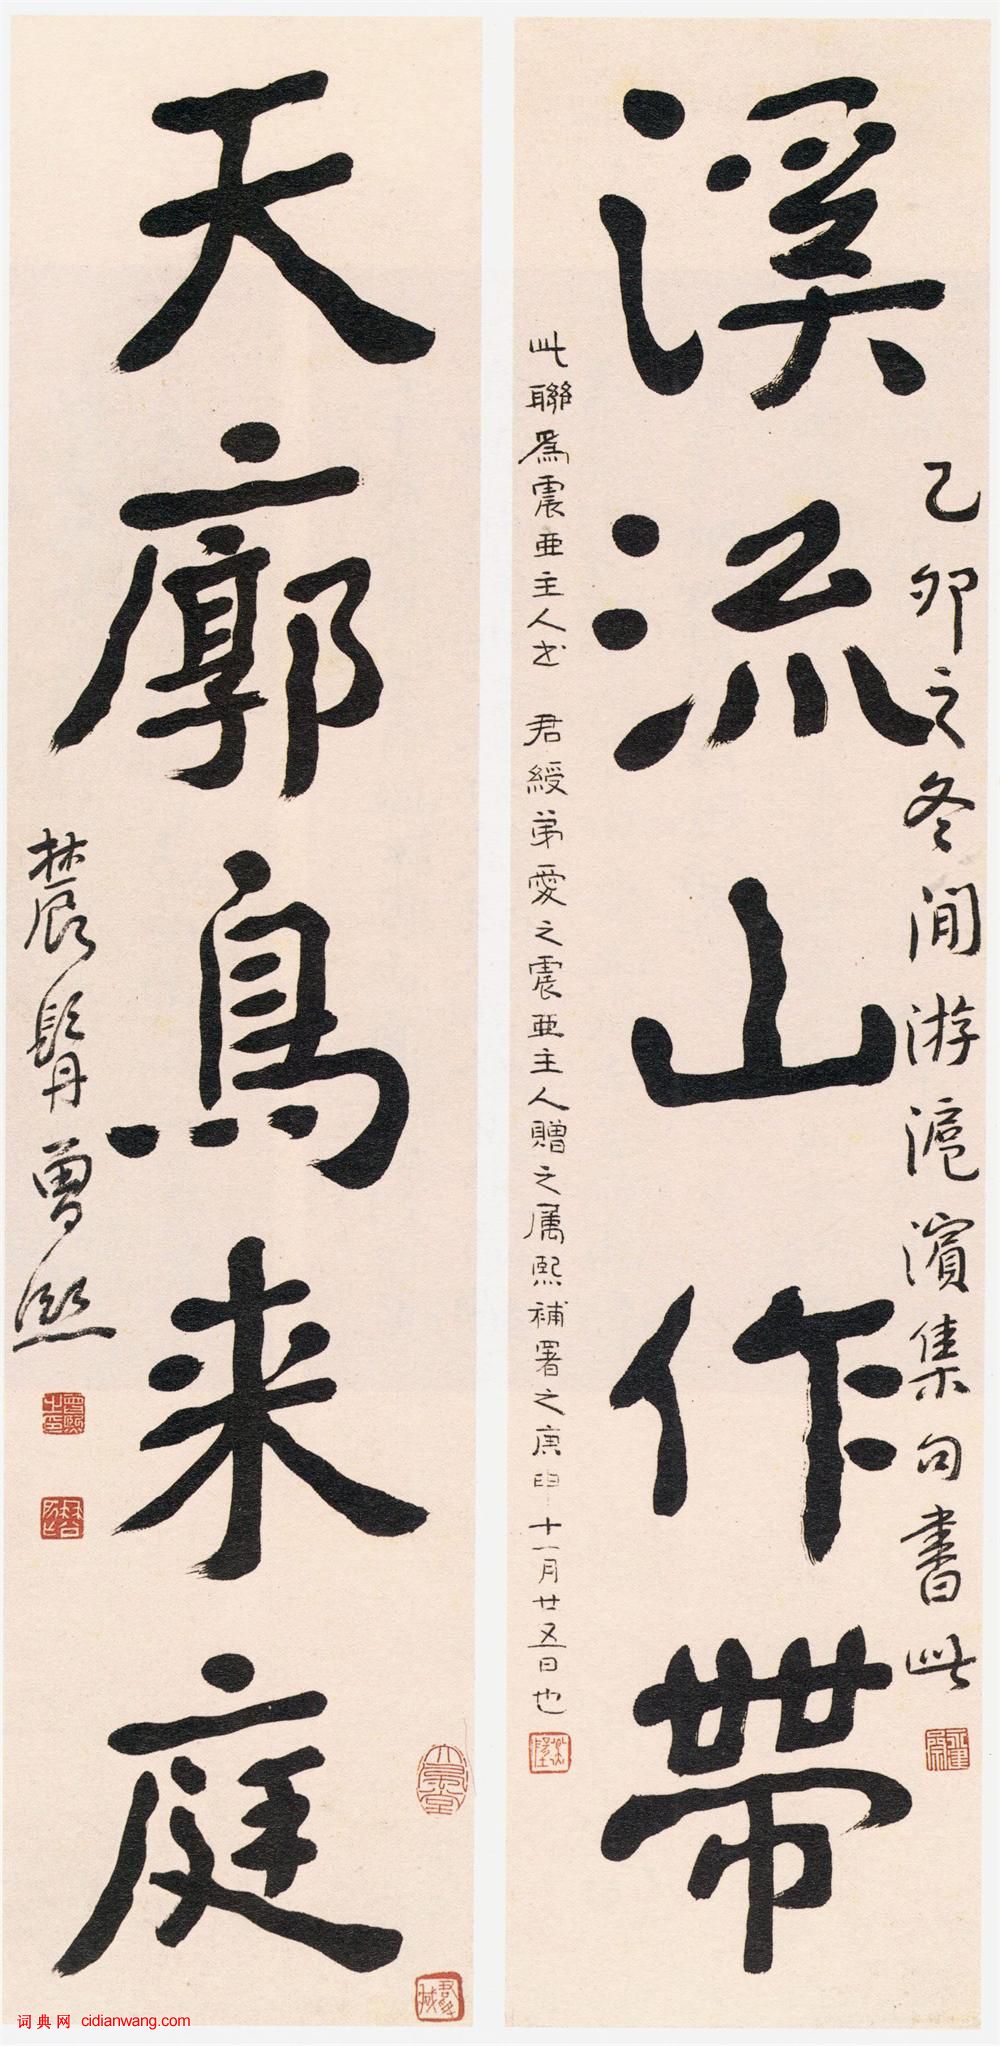 乙卯之冬閒游滬濱集句書此
溪流山作帶
此聯為震亜主人書 君綬弟愛之震亜主人贈之属熙補署之庚申十一月廿五日也
天廓鳥来庭
農髯曾熙
曾熙之印
词典网 cidianwang.com